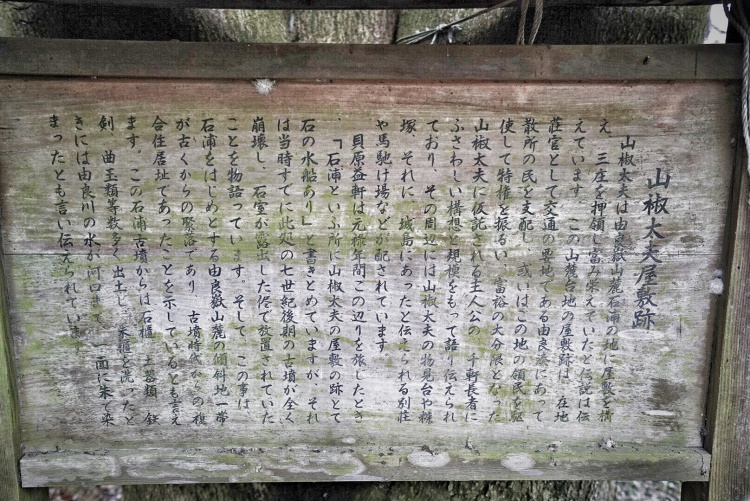 山椒太夫屋敷跡
山椒太夫は由良嶽山麓石浦の地に屋敷を構
え、三庄を押領し富み栄えていたと伝説は伝
えています。この山麓台地の屋敷跡は、在地
荘官として交通の要地である由良湊にあって
散所の民を支配し、或いはこの地の領民を駆
使して特権を振るい、富裕の大分限となった
山椒太夫に仮託される主人公の、千軒長者に
ふさわしい構想と規模をもって語り伝えられ
ており、その周辺には山椒太夫の物見台や糠
塚、それに、城島にあったと伝えられる別荘
や馬駈け場などが配されています。
貝原益軒は元禄年間この辺りを旅したとき
「石浦といふ所に山椒太夫の屋敷の跡とて
石の水船あり」と書きとめていますが、それ
は当時すでに此処の七世紀後期の古墳が全く
崩壊し、石室が露出した侭で放置されていた
ことを物語っています。そして、この事は
石浦をはじめとする由良嶽山麓の傾斜地一帯
が古くからの聚落であり、古墳時代からの複
合住居址であったことを示しているとも言え
ます。この石浦古墳からは石櫃、土器類、鉄
剣、曲玉類等数多く出土し、朱権を洗ったと
きには由良川の水が河口まで、一面に朱で染
まったとも言い伝えられています。